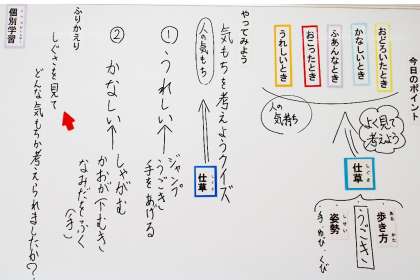 今日のポイント
おどろいたとき
かなしいとき
ふあんなとき
おこったとき
うれしいとき
人の
気持ち
よく見て
考えよう
仕草
しぐさ
歩き方
ある かた
うごき
姿勢
しせい
手・ゆび・くび
やってみよう
気もちを考えようクイズ
人の気もち
仕草
しぐさ
① うれしい
ジャンプ
うごき
手をあげる
② かなしい
しゃがむ
かおが下むき
なおだとぶく
(手)
ふりかえり
しぐさを見て
どんな気もちか考えられましたか?
個別学習